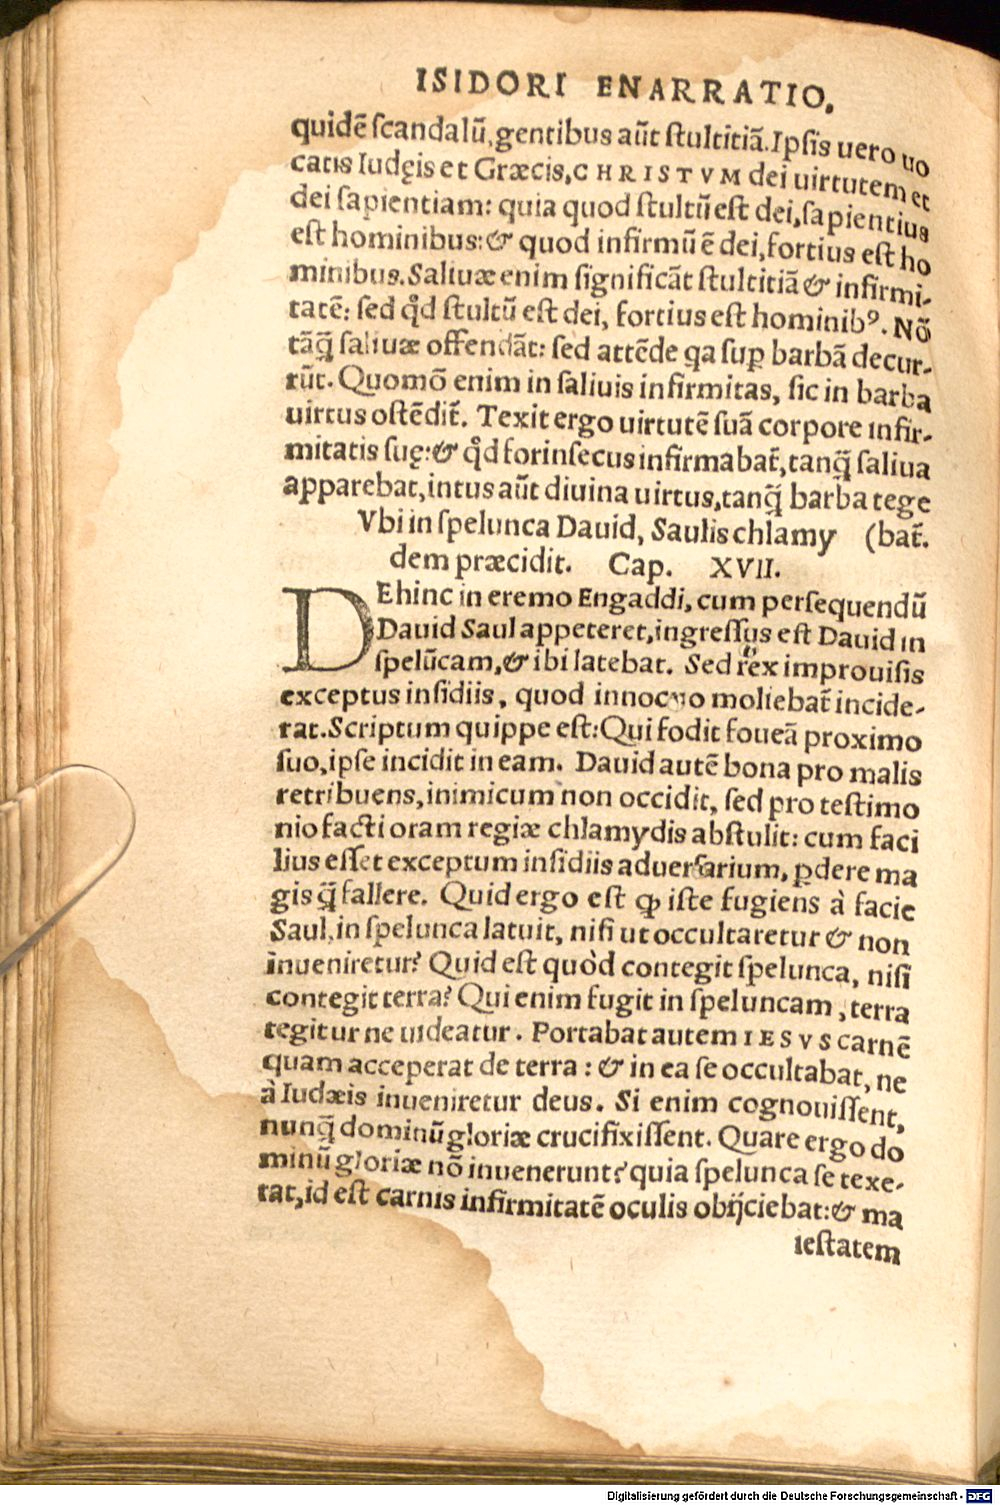 ISIDORI ENARRATIO.
quidẽ scandalũ, gentibus aũt stultitiã. Ipsis uero uo
catis Iudęis et Græcis, CHRISTVM dei uirtutem et
dei sapientiam: quia quod stultũ est dei, sapientius
est hominibus: & quod infirmũ ẽ dei, fortius est ho
minibus. Saliuæ enim significãt stultitiã & infirmi-
tatẽ: sed qd̉ stultũ est dei, fortius est hominibꝰ. Nõ
tãq̃ saliuæ offendãt: sed attẽde qa suꝑ barbã decur-
rũt. Quomõ enim in saliuis infirmitas, sic in barba
uirtus ostẽdit̃. Texit ergo uirtutẽ suã corpore infir-
mitatis suę: & qd̉ forinsecus infirmabat̃, tanq̃ saliua
apparebat, intus aũt diuina uirtus, tanq̃ barba tege
Vbi in spelunca Dauid, Saulis chlamy (bat̃.
dem præcidit. Cap. XVII.
DEhinc in eremo Engaddi, cum persequendũ
Dauid Saul appeteret, ingressus est Dauid in
spelũcam, & ibi latebat. Sed rex improuisis
exceptus insidiis, quod innocuo moliebat̃ incide-
rat. Scriptum quippe est: Qui fodit foueã proximo
suo, ipse incidit in eam. Dauid autẽ bona pro malis
retribuens, inimicum non occidit, sed pro testimo
nio facti oram regiæ chlamydis abstulit: cum faci
lius esset exceptum insidiis aduersarium, ꝑdere ma
gis q̃ fallere. Quid ergo est ꝙ iste fugiens à facie
Saul, in spelunca latuit, nisi ut occultaretur & non
inueniretur? Quid est quòd contegit spelunca, nisi
contegit terra? Qui enim fugit in speluncam, terra
tegitur ne uideatur. Portabat autem IESVS carnẽ
quam acceperat de terra: & in ea se occultabat, ne
à Iudæis inueniretur deus. Si enim cognouissent,
nunq̃ dominũ gloriæ crucifixissent. Quare ergo do
minũ gloriæ nõ inuenerunt? quia spelunca se texe-
rat, id est carnis infirmitatẽ oculis obijciebat: & ma
iestatem
Digitalisierung gefördert durch die Deutsche Forschungsgemeinschaft - DFG